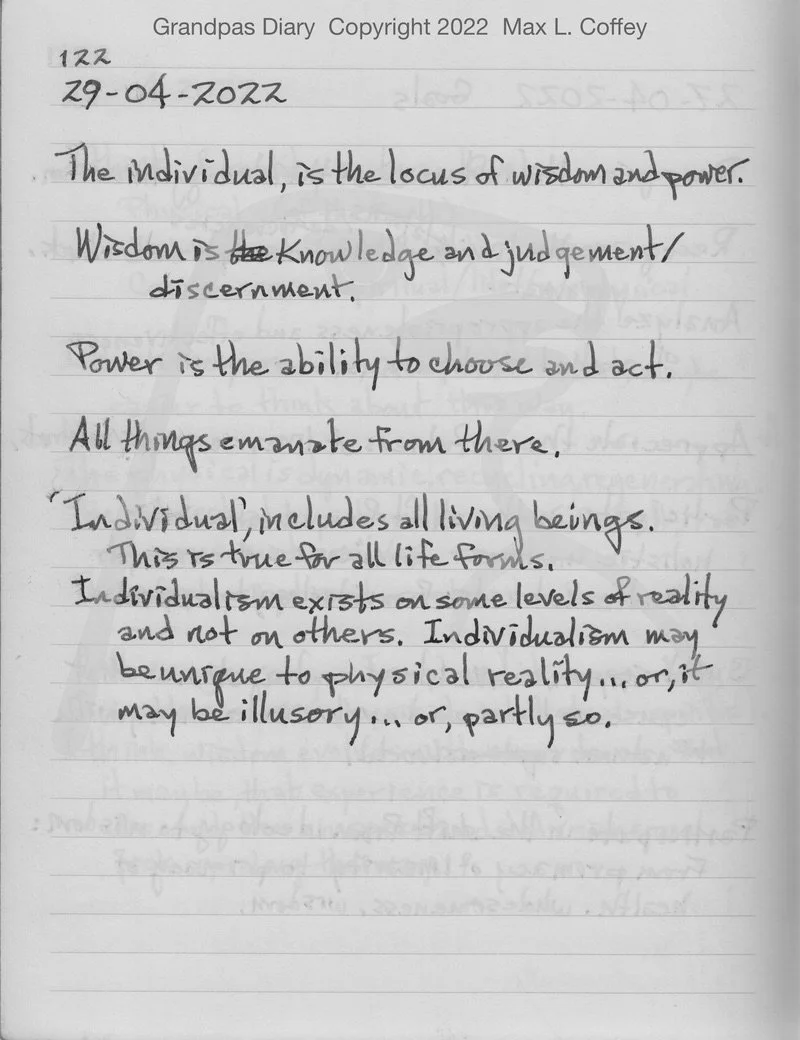 Grandpas Diary Copyright 2022 Max L. Coffey
122
29-04-2022
The individual, is the locus of wisdom and power.
Wisdom is the Knowledge and judgement/
discernment.
Power is the ability to choose and act.
All things emanate from there.
'Individual', includes all living beings.
This is true for all life forms.
Individualism exists on some levels of reality
and not on others. Individualism may
be unique to physical reality... or, it
may be illusory... or, partly so.